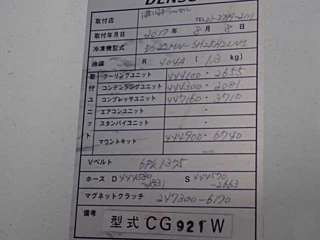 DENSO
取付店
TEL 03-3799-2111
取付年月日 2017年 8月 8日
冷凍機型式
冷媒 R 404A ( 1.3 kg)
取付ユニット
クーリングユニット 444100-2655
コンデンシングユニット 444300-2081
コンプレッサユニット 447160-3710
エアコンユニット
スタンバイユニット
マウントキット 444900-6740
Vベルト 6PK1375
ホース D S
マグネットクラッチ 247300-6170
備考 型式 CG921W